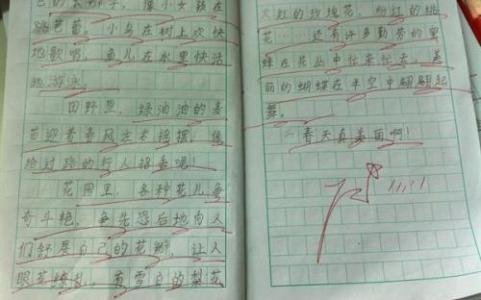 跳芭蕾，小鸟在树上欢快
地歌唱，鱼儿在水里快活
地游泳。
田野里，绿油油的麦
苗迎着春风左右摇摆，像
给过路的行人招手呢！
花园里，各种花儿争
奇斗艳，争先恐后地向人
们舒展自己的花瓣，让人
眼花缭乱，有雪白的梨花
火红的玫瑰花，粉红的桃
花……还有许多勤劳的蜜
蜂在花丛中忙来忙去，美
丽的蝴蝶在半空中翩翩起
舞。
春天真美丽啊！